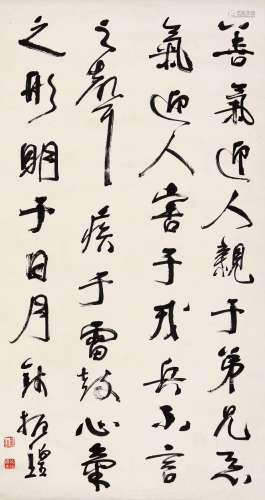 善氣迎人親于弟兄惡
氣迎人害于戎兵不言
之聲疾于雷鼓心氣
之形明于日月 錢振鍠